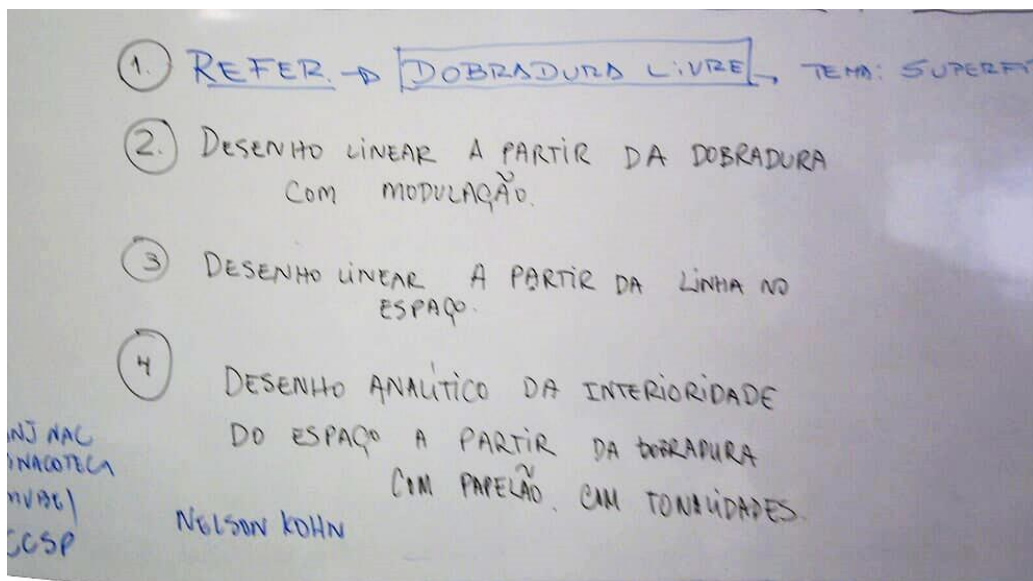 1. REFER. → DOBRADURA LIVRE → TEMA:
2. DESENHO LINEAR A PARTIR DA DOBRADURA
COM MODULAÇÃO.
3 DESENHO LINEAR A PARTIR DA LINHA NO
ESPAÇO.
4 DESENHO ANALÍTICO DA INTERIORIDADE
DO ESPAÇO A PARTIR DA DOBRADURA
COM PAPELÃO. COM TONALIDADES.
NAC
CCSP
NELSON KOHN